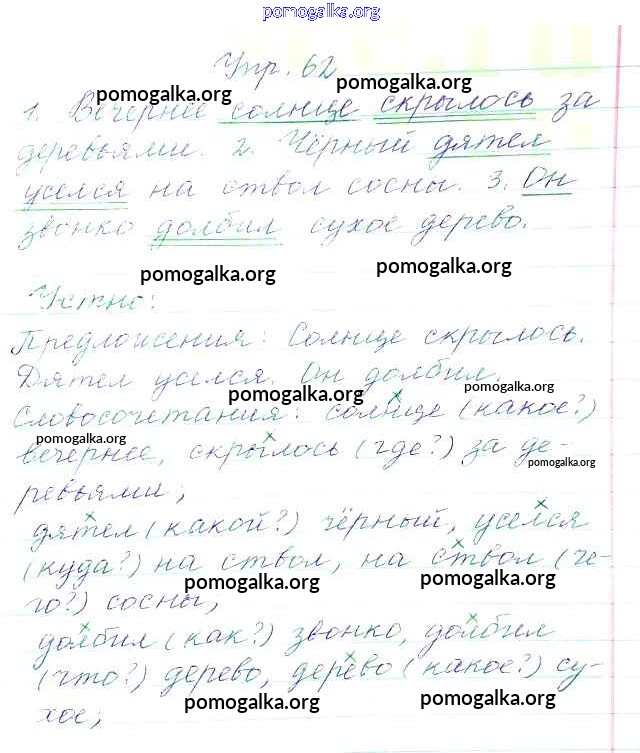 pomogalka.org
Упр. 62
pomogalka.org
pomogalka.org
1. Вечернее солнце скрылось за
pomogalka.org
pomogalka.org
деревьями. 2. Чёрный дятел
уселся на ствол сосны. 3. Он
звонко долбил сухое дерево.
pomogalka.org
pomogalka.org
Устно:
Предложения: Солнце скрылось.
Дятел уселся. Он долбил.
pomogalka.org
pomogalka.org
Словосочетания: солнце (какое?)
pomogalka.org
вечернее, скрылось (где?) за де-
pomogalka.org
ревьями;
дятел (какой?) чёрный, уселся
(куда?) на ствол, на ствол (че-
pomogalka.org
pomogalka.org
го?) сосны,
долбил (как?) звонко, долбил
(что?) дерево, дерево (какое?) су-
pomogalka.org
pomogalka.org
хое;